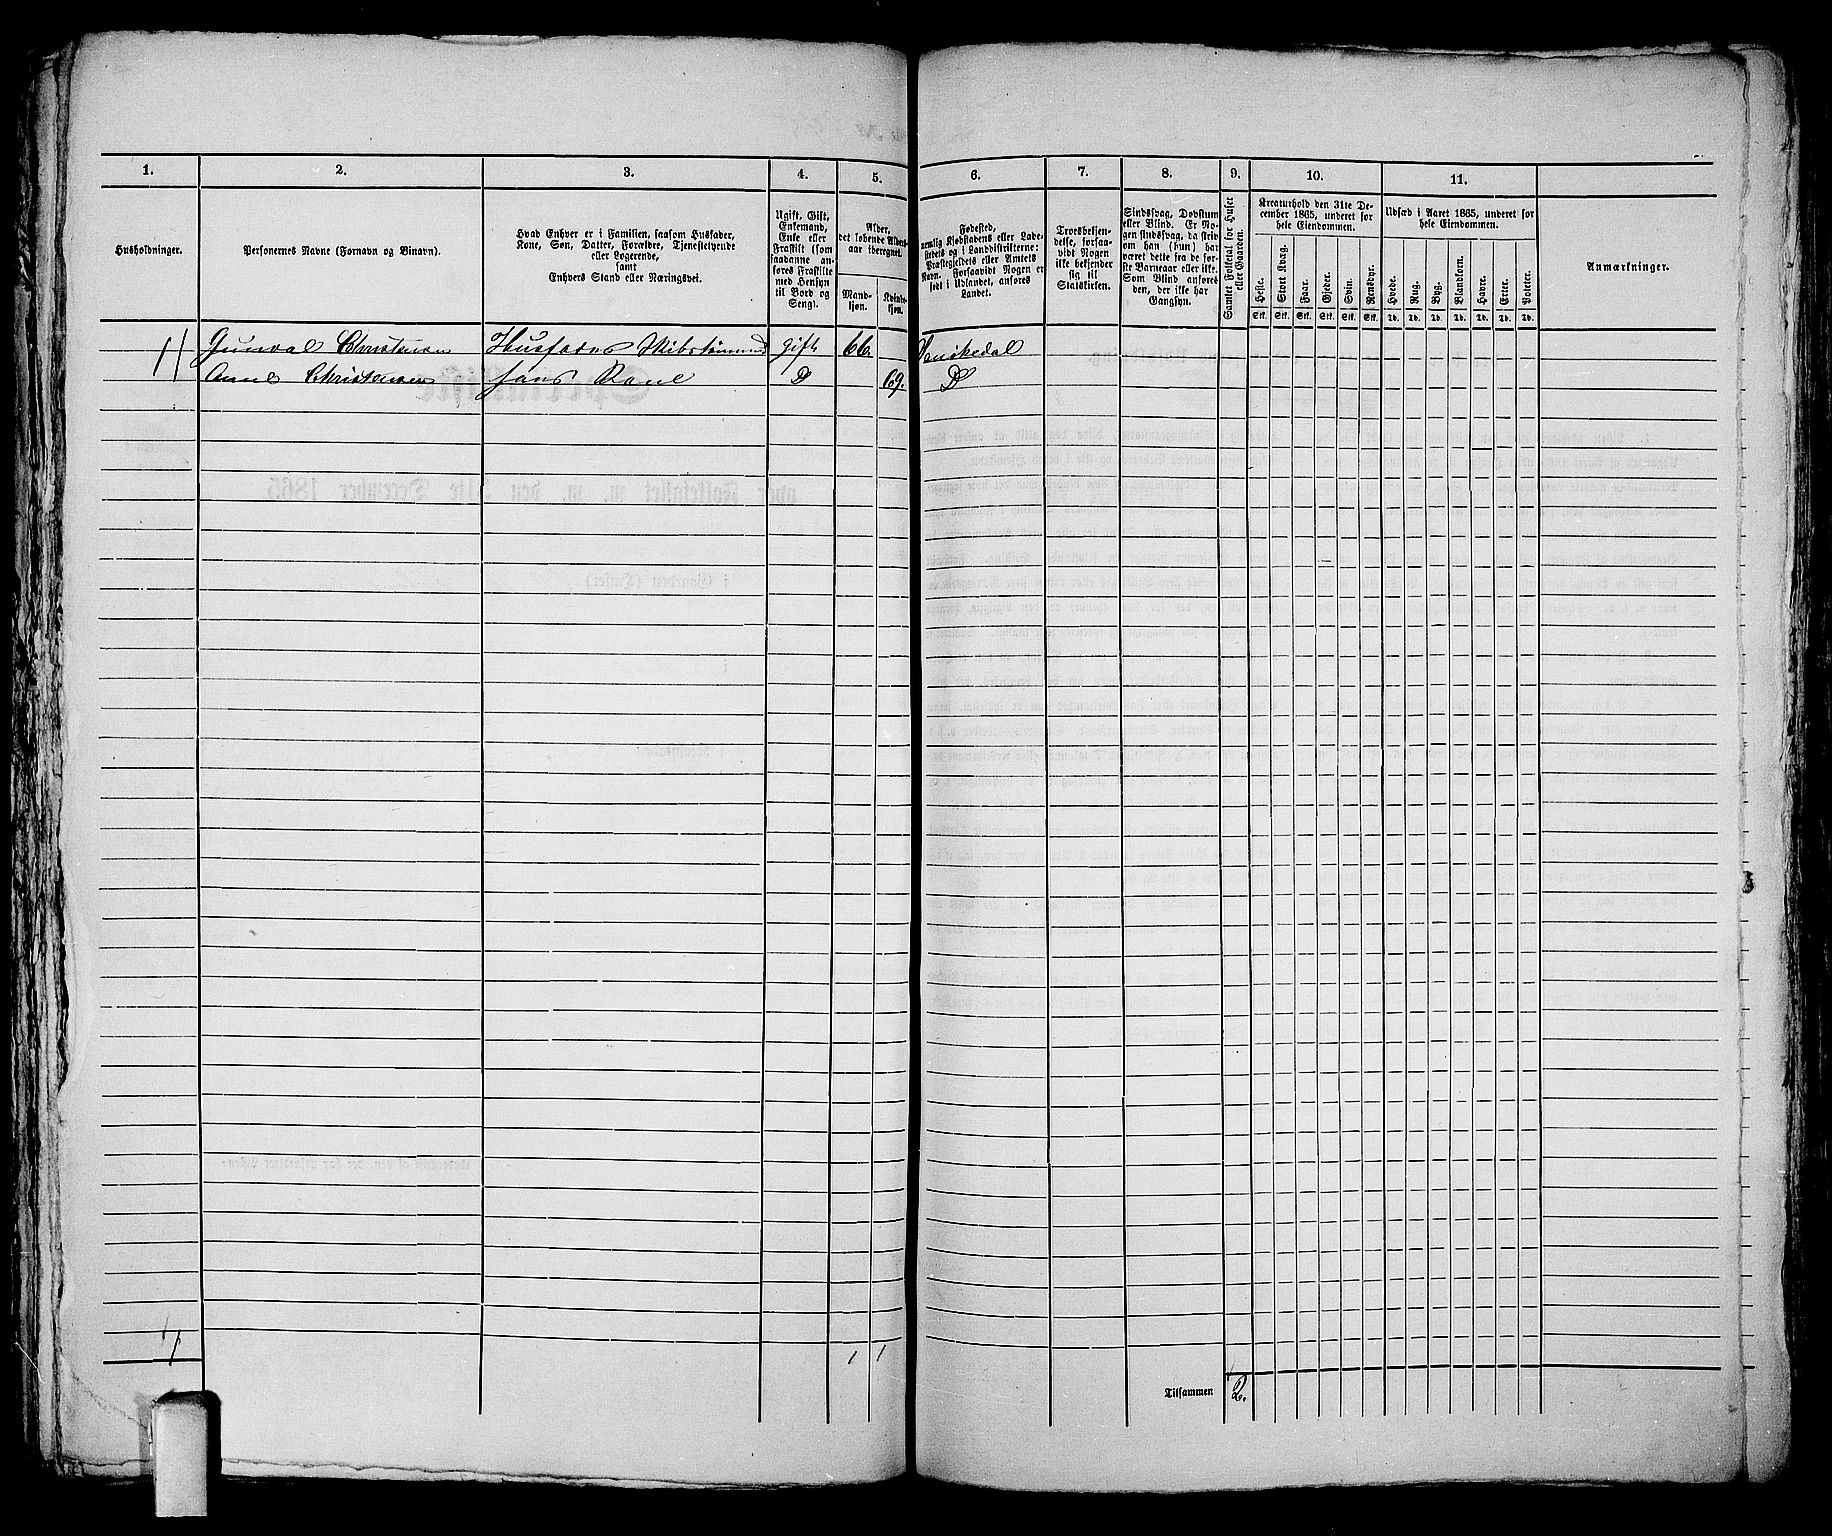 1. 2. 3. 4. 5. 6. 7. 8. 9. 10. 11.
Husholdninger.
Personernes Navne (Fornavn og Binavn).
Hvad Enhver er i Familien, saasom Husfader,
Kone, Søn, Datter, Forældre, Tjenestetyende
eller Logerende,
samt
Enhvers Stand eller Næringsvei.
Ugift, Gift,
Enkemand,
Enke eller
Fraskilt (som
saadanne an-
føres Fraskilte
med Hensyn
til Bord og
Seng).
Alder,
det løbende Alders-
aar iberegnet.
Mand-
kjøn.
Kvinde-
kjøn.
Fødested,
nemlig Kjøbstadens eller Lade-
stedets og i Landdistrikterne:
Præstegjeldets eller Amtets
Navn. Forsaavidt Nogen er
født i Udlandet, anføres
Landet.
Troesbekjen-
delse, forsaa-
vidt Nogen
ikke bekjender
sig til
Statskirken.
Sindssvag, Døvstum
eller Blind. Er No-
gen sindssvag, da skriv
om han (hun) har
været dette fra de før-
ste Barneaar eller ikke.
Som Blind anføres
den, der ikke har
Gangsyn.
Samlet Folketal for Huset
eller Gaarden.
Kreaturhold den 31te De-
cember 1865, underet for
hele Eiendommen.
Heste. Stort Kvæg. Faar. Gjeder. Svin. Rensdyr.
Stk. Stk. Stk. Stk. Stk. Stk.
Udsæd i Aaret 1865, underet for
hele Eiendommen.
Hvede. Rug. Byg. Blandkorn. Havre. Erter. Poteter.
Td. Td. Td. Td. Td. Td. Td.
Anmærkninger.
Gunval Christensen Husfader Skibstømmerm gift 66. Venškedal
Anne Christensen hans Kone D 69. D
1 1 1
Tilsammen 2.